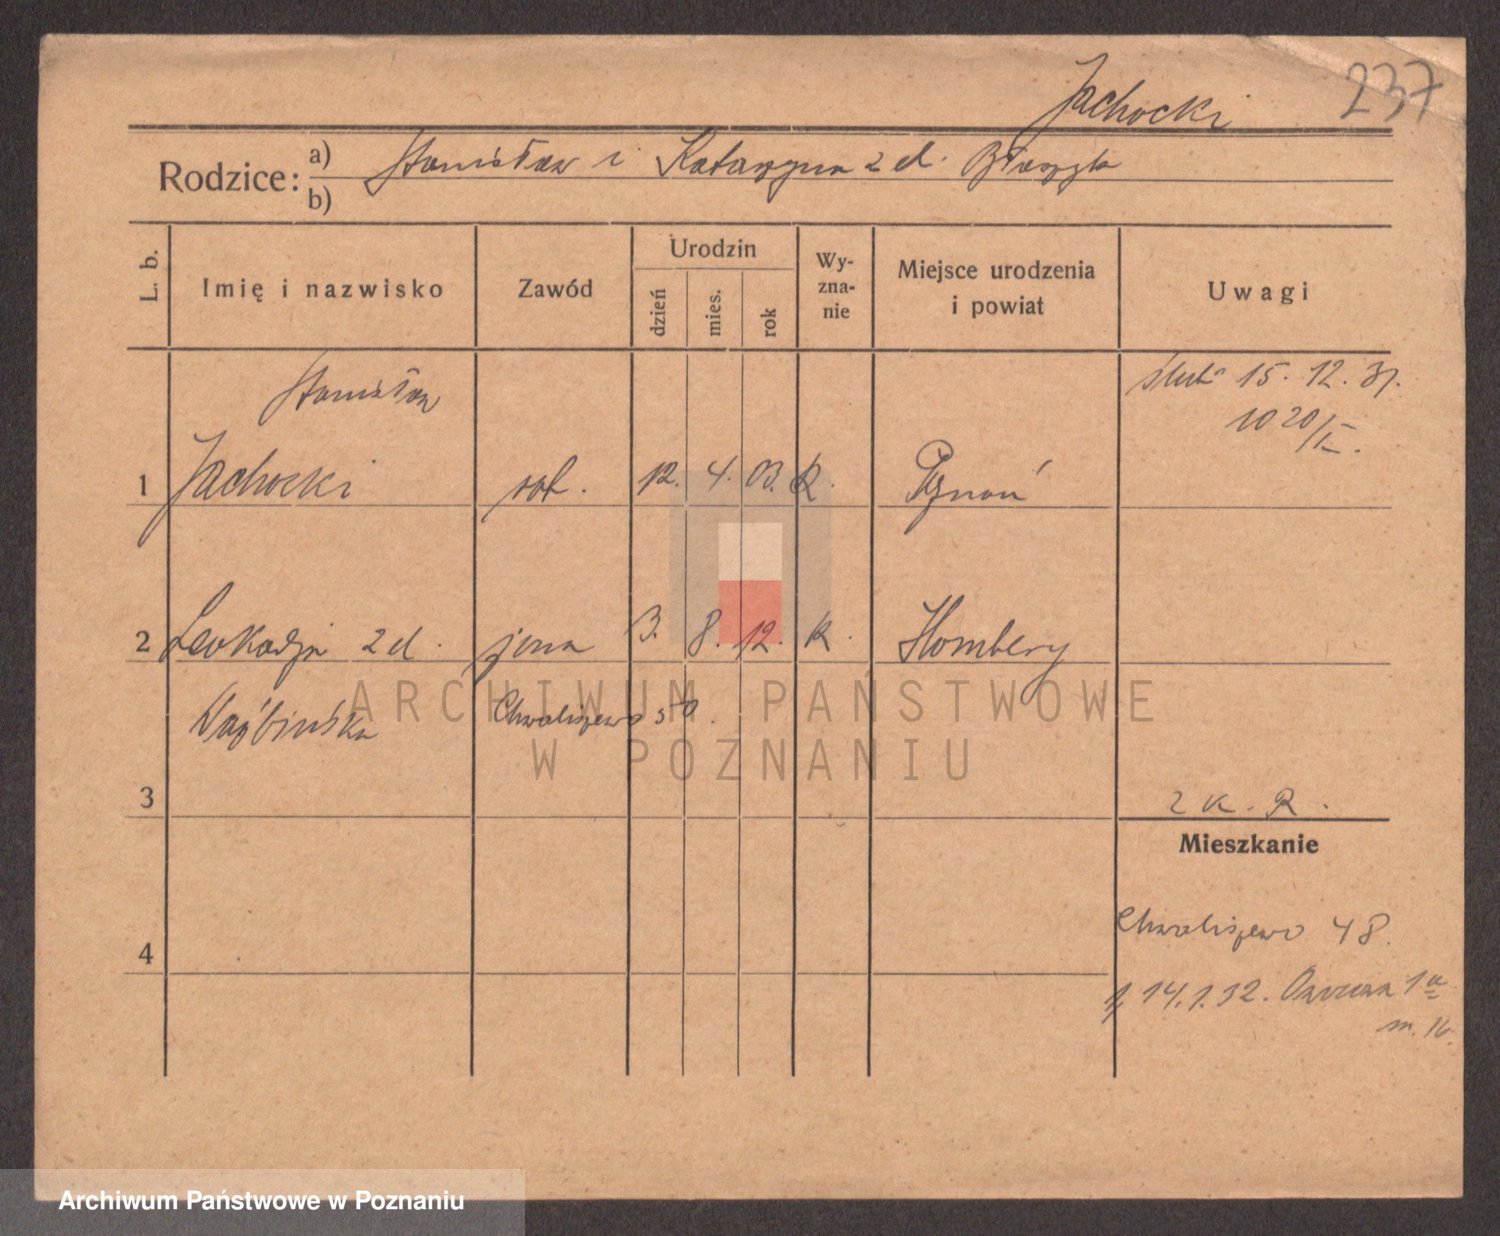 237
Jachocki
Rodzice: a) Stanisław i Katarzyna z d. Błaszyk
b)
L. b. Imię i nazwisko Zawód Urodzin dzień mies. rok Wy-zna-nie Miejsce urodzenia i powiat Uwagi
Stanisław ślub 15. 12. 31.
1020/II.
1 Jachocki rob. 12. 4. 03. R. Poznań
2 Leokadja z d. żona 3. 8. 12. k. Homberg
Chwaliszewo 50.
ARCHIWUM PAŃSTWOWE
W POZNANIU
3 2 K. R.
Mieszkanie
Chwaliszewo 48.
4
14.1.32. 1a
m. 16.
Archiwum Państwowe w Poznaniu